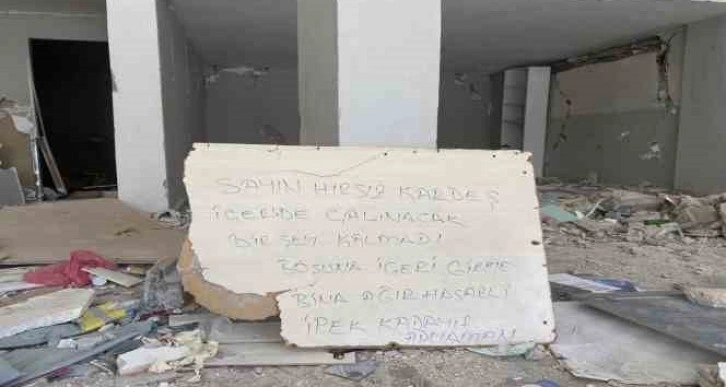 SAYIN HIRSIZ KARDEŞ
İÇERİDE ÇALINACAK
BİR ŞEY KALMADI
BOŞUNA İÇERİ GİRME
BİNA AĞIR HASARLI
İPEK
ADIYAMAN